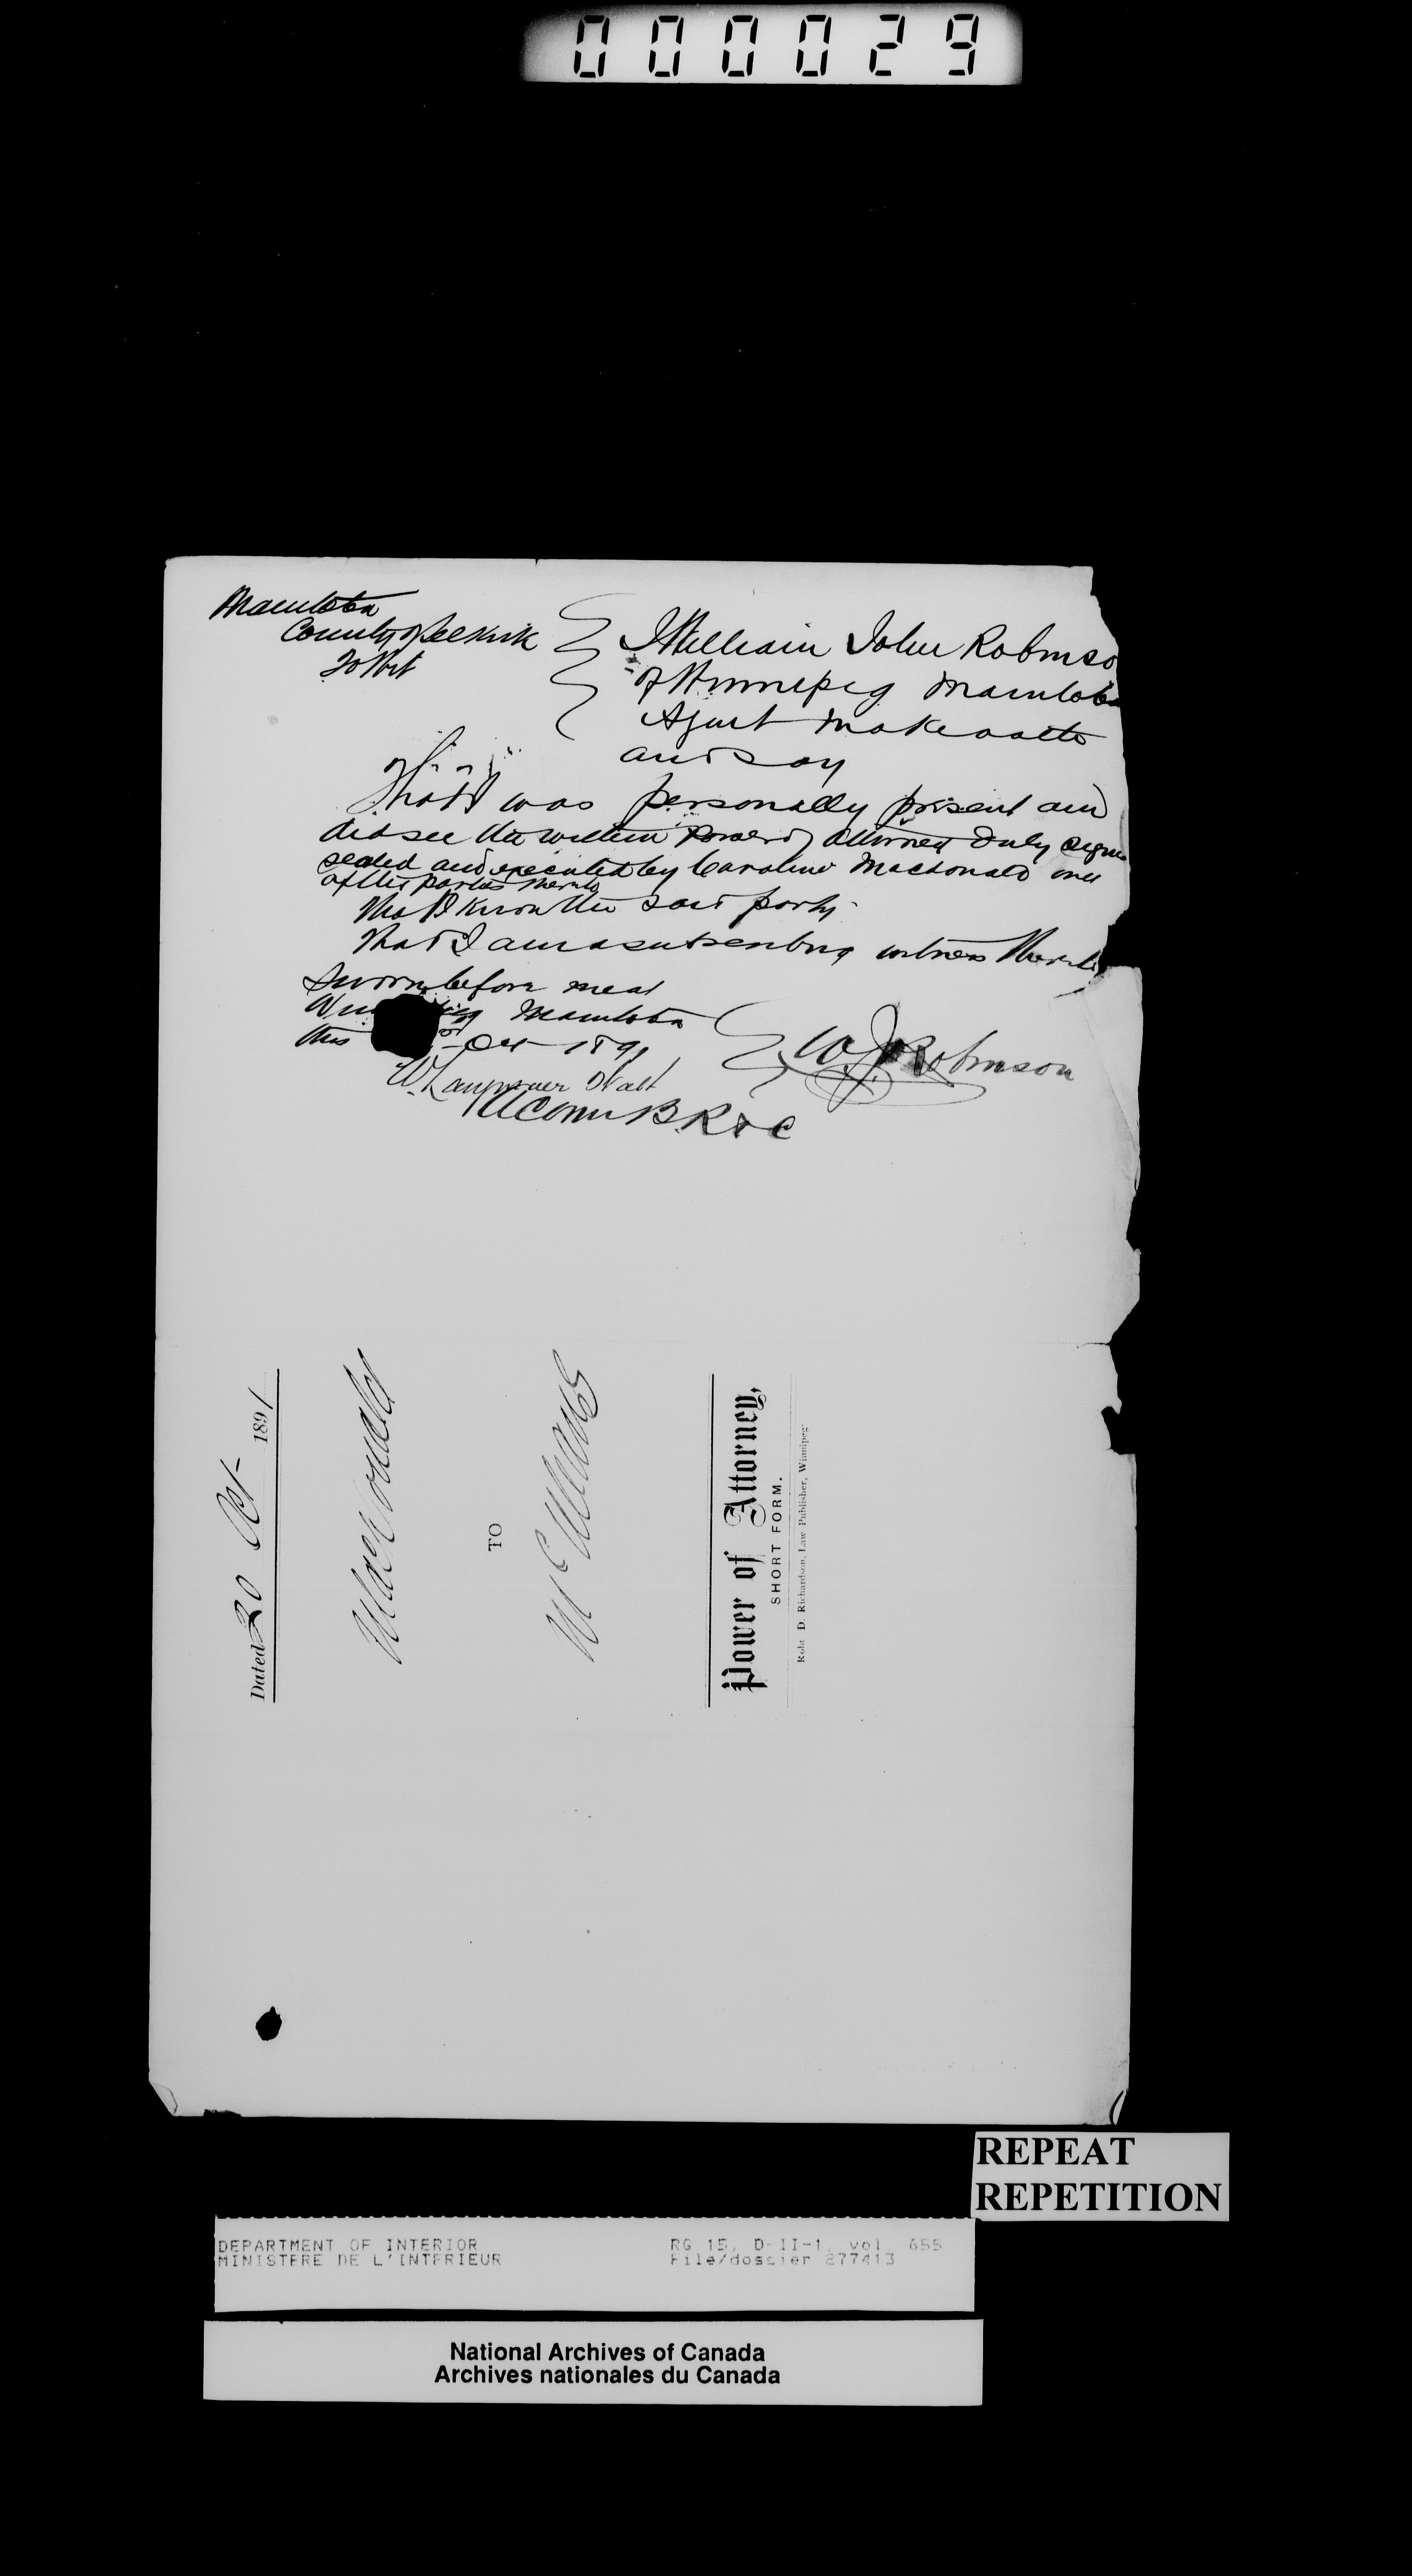 000029
Manitoba
County of Selkirk
To Wit
I William John Robinso
of Winnipeg Manitoba
Agent make oath
and say
That I was personally present and
did see the within Power of Attorney duly signed
sealed and executed by Caroline Macdonald one
of the parties thereto
That I know the said party
That I am a subscribing witness thereto
Sworn before me at
Manitoba
this Oct 1891
W. J. Robinson
A Comr B.R &c
Dated 20 Oct 1891
MacDonald
TO
McMeans
Power of Attorney,
SHORT FORM.
Robt D. Richardson, Law Publisher, Winnipeg
REPEAT
REPETITION
DEPARTMENT OF INTERIOR RG 15, D-II-1, vol 655
MINISTERE DE L'INTERIEUR File/dossier 277413
National Archives of Canada
Archives nationales du Canada